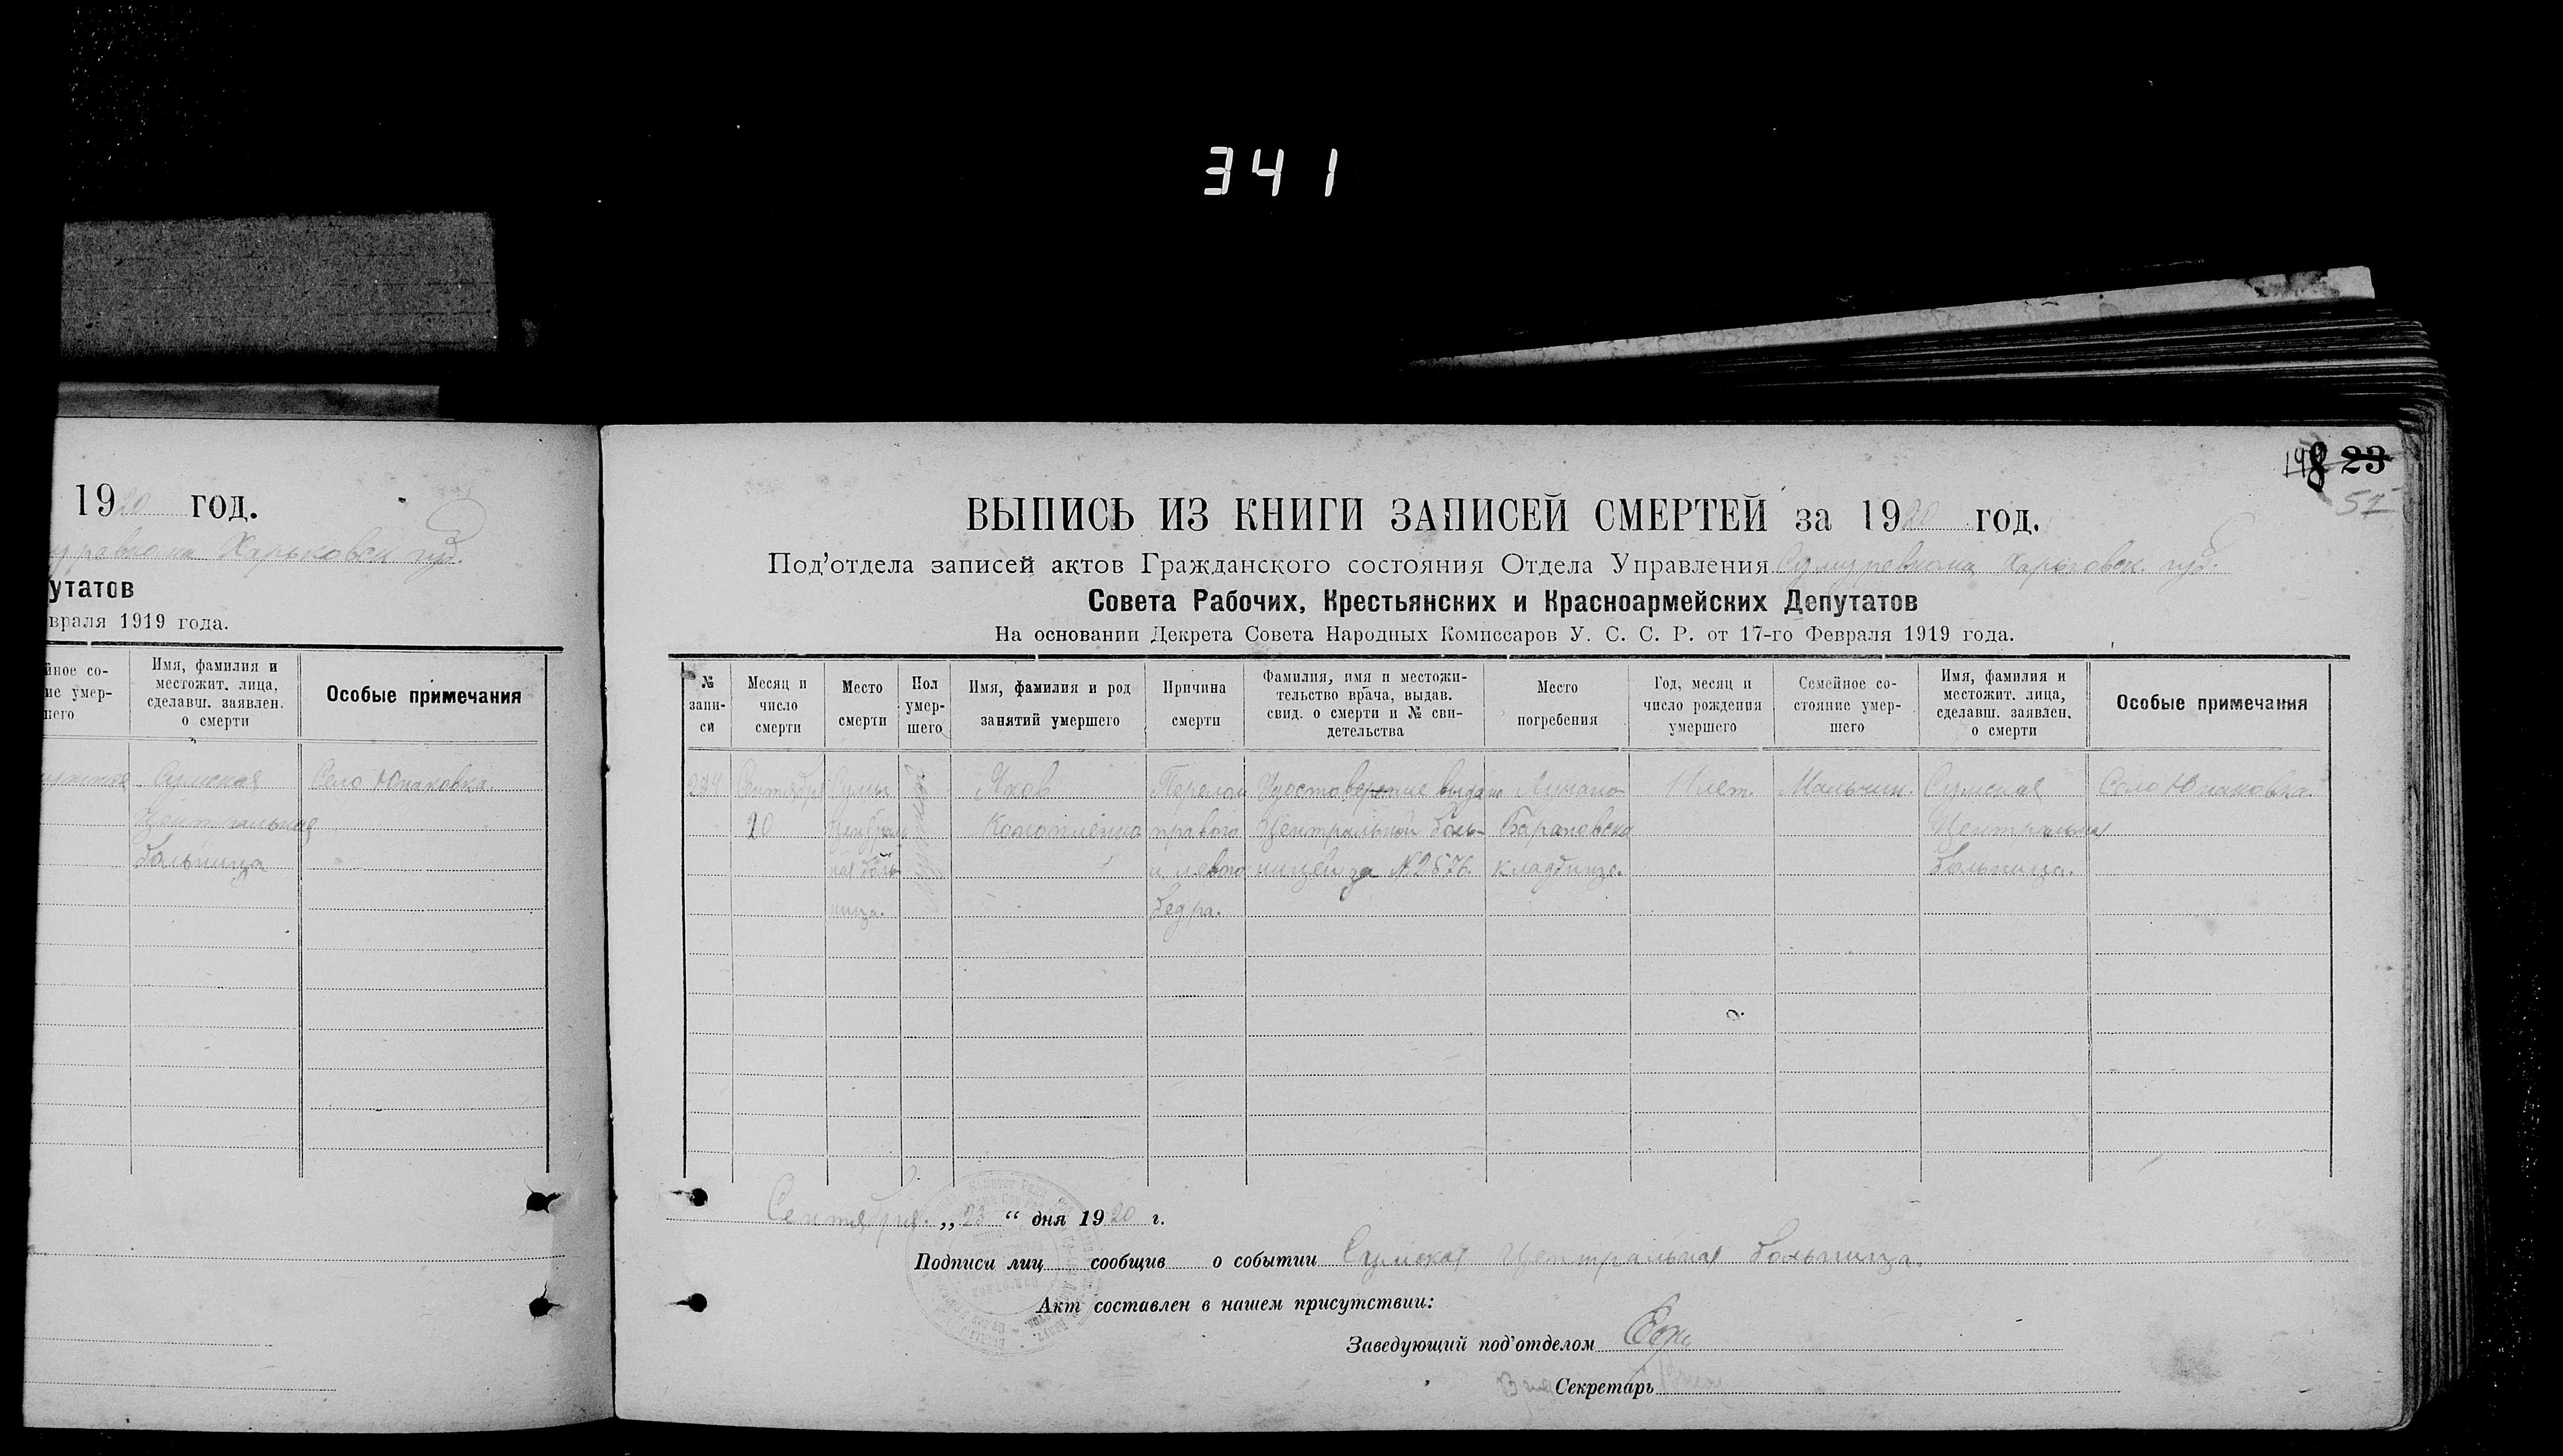 341
1920 год.
Харьковск губ.
утатов
враля 1919 года.
йное со-
ие умер-
шего
Имя, фамилия и
местожит. лица,
сделавш. заявлен.
о смерти
Особые примечания
Сумская
Центральная
больница
Село Юнаковка.
23
52
ВЫПИСЬ ИЗ КНИГИ ЗАПИСЕЙ СМЕРТЕЙ за 1920 год.
Под'отдела записей актов Гражданского состояния Отдела Управления Сумуревкома Харьковск. губ.
Совета Рабочих, Крестьянских и Красноармейских Депутатов
На основании Декрета Совета Народных Комиссаров У. С. С. Р. от 17-го Февраля 1919 года.
№
запи-
си
Месяц и
число
смерти
Место
смерти
Пол
умер-
шего
Имя, фамилия и род
занятий умершего
Причина
смерти
Фамилия, имя и местожи-
тельство врача, выдав.
свид. о смерти и № сви-
детельства
Место
погребения
Год, месяц и
число рождения
умершего
Семейное со-
стояние умер-
шего
Имя, фамилия и
местожит. лица,
сделавш. заявлен.
о смерти
Особые примечания
Сентября
20
Сумы
Централь
ная боль
ница.
Яков
Перелом
правого
и левого
бедра.
Удостоверение выдано
Центральной боль-
ницей за № 2576.
Лучано
Барановско
кладбище.
11 лет.
Мальчик.
Сумская
Центральная
больница.
Село Юнаковка.
Сентября „23“ дня 1920 г.
Подписи лиц сообщив о событии Сумская Центральная больница.
Акт составлен в нашем присутствии:
Заведующий под'отделом
Секретарь